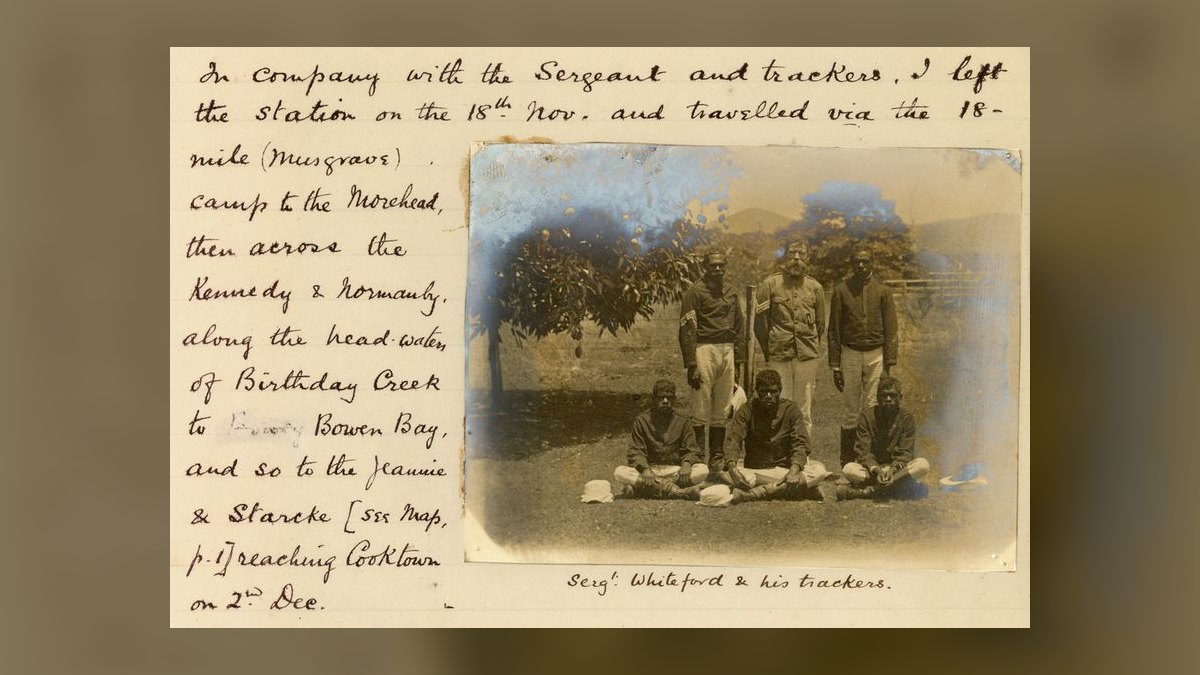 In company with the Sergeant and trackers. I left
the station on the 18th Nov. and travelled via the 18-
mile (Musgrave)
camp to the Morehead,
then across the
Kennedy & Normanby,
along the head-waters
of Birthday Creek
to Bowen Bay,
and so to the Jeannie
& Starcke [see Map,
p. 1] reaching Cooktown
on 2nd Dec.
Sergt. Whiteford & his trackers.